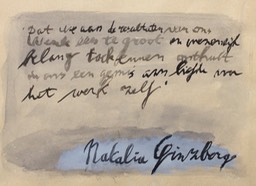 Dat we aan de resultaten van ons
werk een te groot en wezenlijk
belang toekennen onthult
in ons een gemis aan liefde voor
het werk zelf!
Natalia Ginzburg